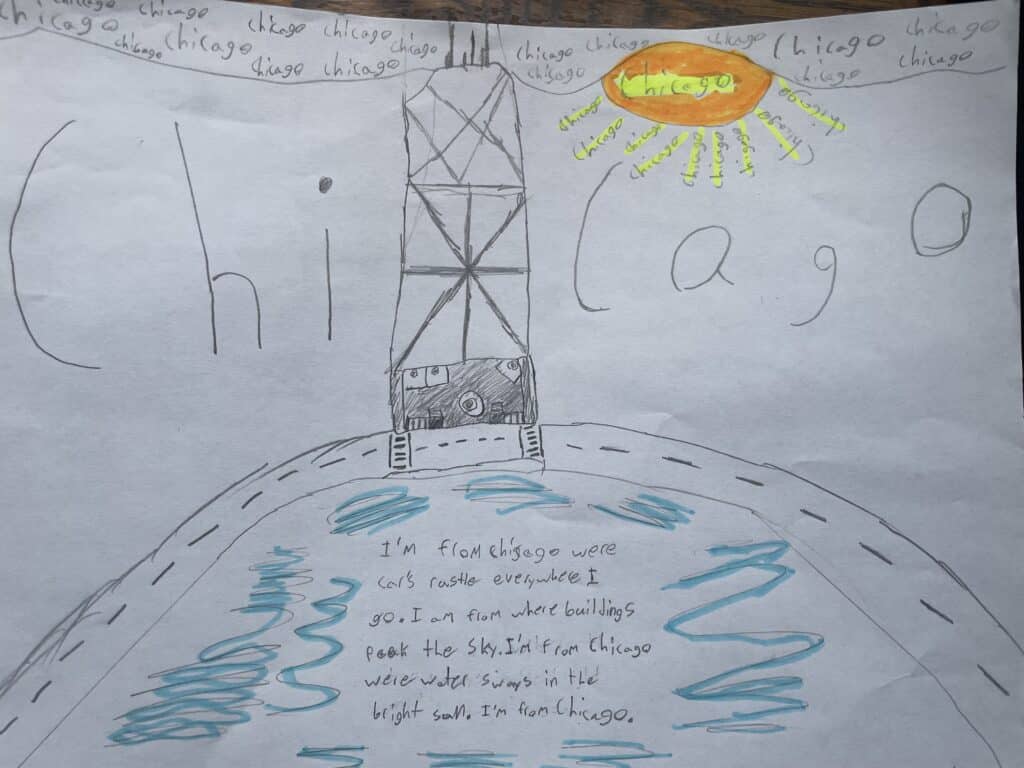 chicago chicago
Chicago chicago chicago chicago
chicago chicago chicago chicago chicago chicago
chicago chicago chicago chicago chicago
chicago chicago
Chicago
chicago chicago chicago chicago chicago chicago chicago chicago chicago
Chicago
I'm from chigago were
car's rustle everywhere I
go. I am from where buildings
peak the sky. I'm from Chicago
were water sways in the
bright sun. I'm from Chicago.